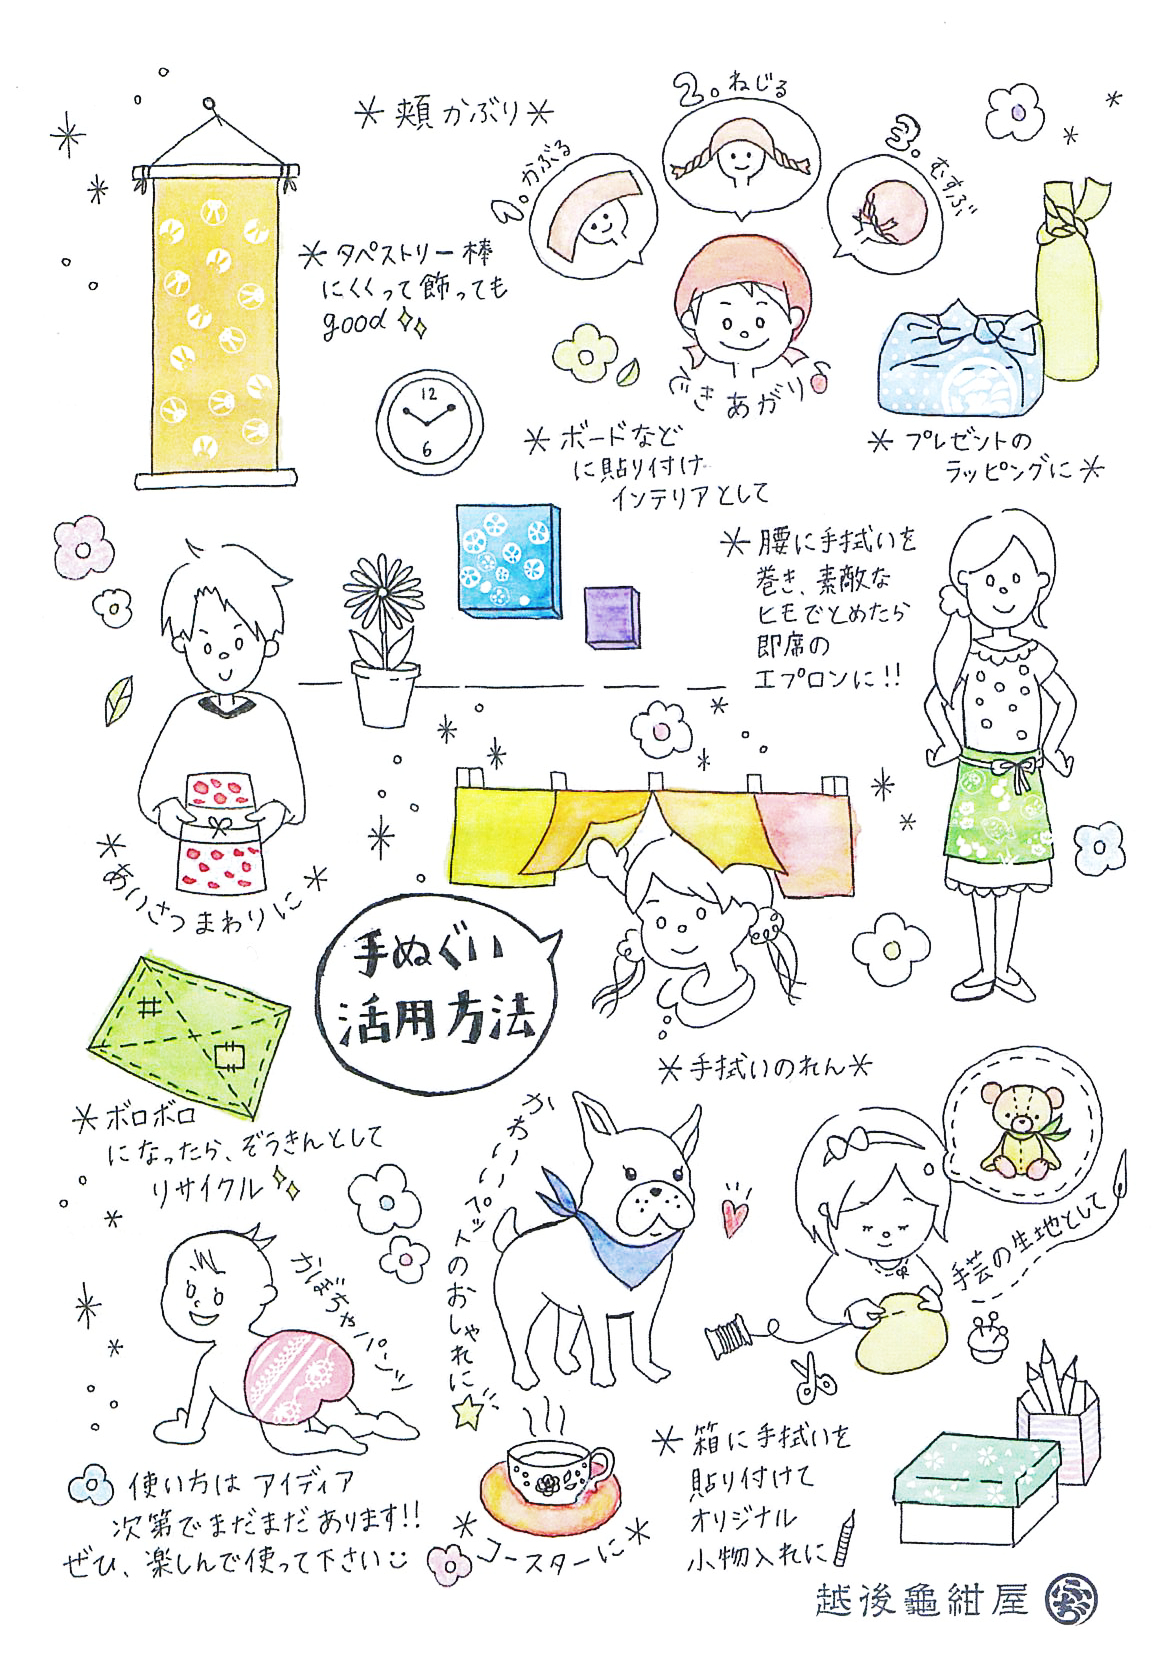 ＊頬かぶり＊
1.かぶる
2.ねじる
3.むすぶ
できあがり
＊タペストリー棒
にくくって飾っても
good
12
6
＊ボードなど
に貼り付け
インテリアとして
＊プレゼントの
ラッピングに＊
＊腰に手拭いを
巻き、素敵な
ヒモでとめたら
即席の
エプロンに!!
＊あいさつまわりに＊
手ぬぐい
活用方法
＊手拭いのれん＊
＊ボロボロ
になったら、ぞうきんとして
リサイクル
かわいいペットのおしゃれに
手芸の生地として
かぼちゃパンツ
＊コースターに＊
＊箱に手拭いを
貼り付けて
オリジナル
小物入れに
使い方はアイディア
次第でまだまだあります!!
ぜひ、楽しんで使って下さい
越後龜紺屋